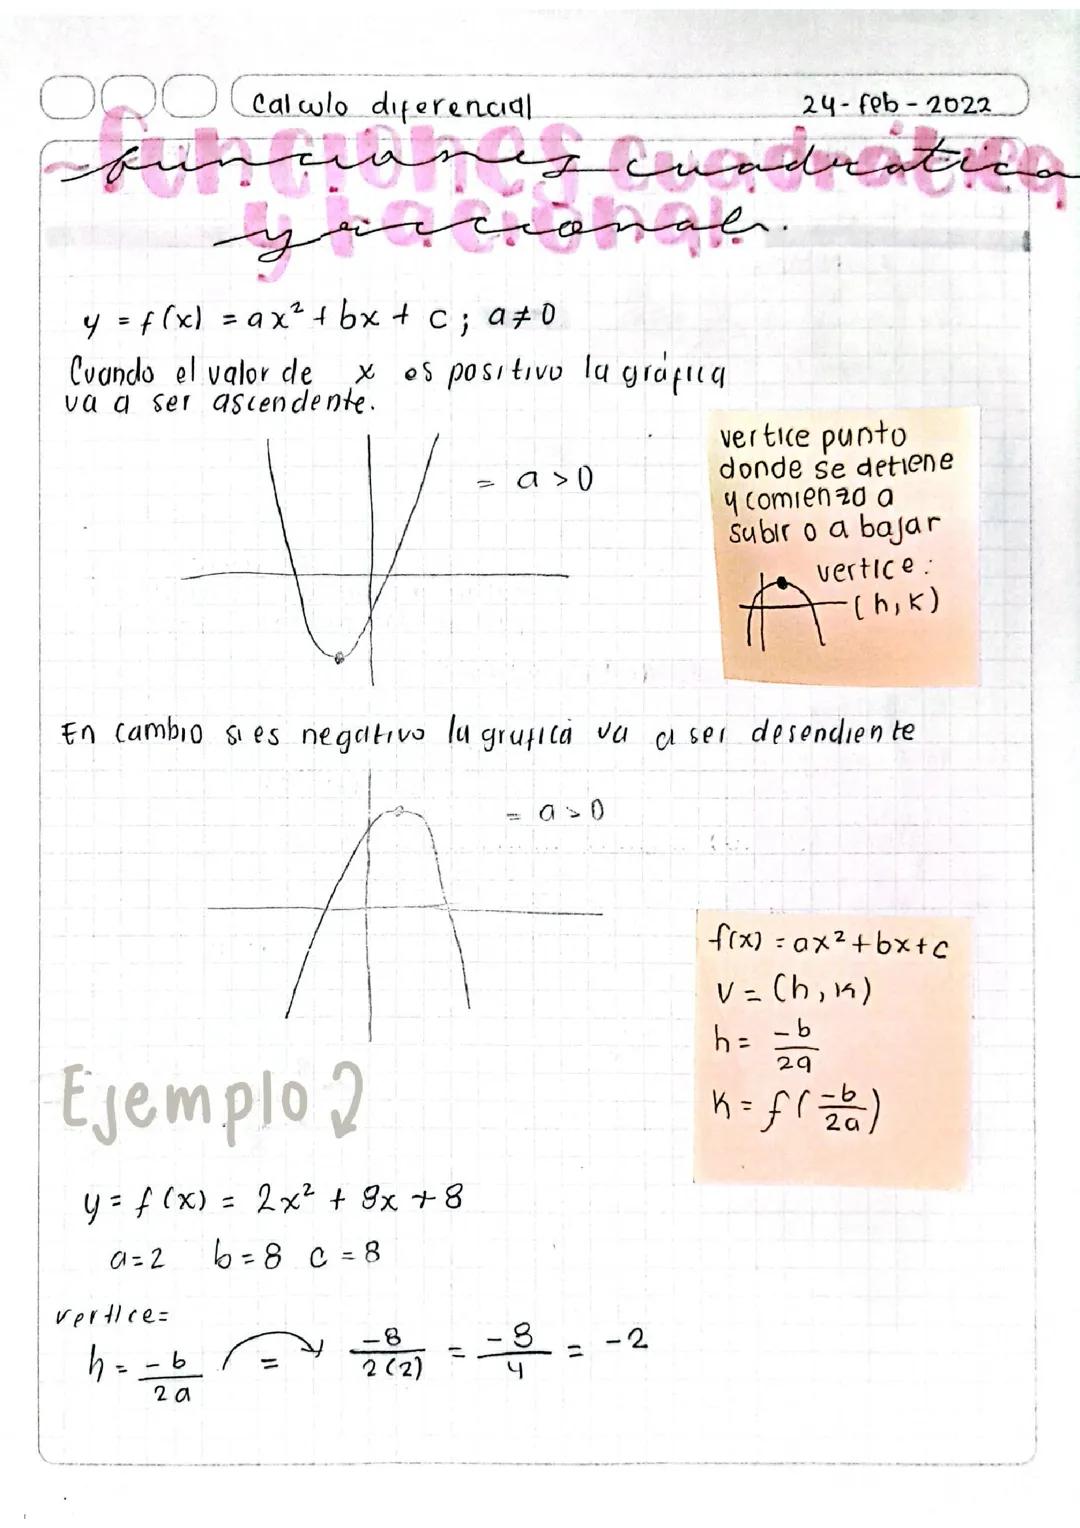 Calculo diferencial
24-feb-2022
funciones cuadrática
y racional.
y = f(x) = ax² + bx + c; a≠0
Cuando el valor de x es positivo la gráfica
va a ser ascendente.
= a > 0
vertice punto
donde se detiene
y comienza a
subir o a bajar
vertice:
(h,k)
En cambio si es negativo la grafica va a ser desendiente
= a > 0
f(x) = ax² + bx + c
V = (h, k)
h = -b/2a
K = f(-b/2a)
Ejemplo
y = f(x) = 2x² + 8x + 8
a = 2 b = 8 c = 8
vertice=
h = -b/2a = -8/2(2) = -8/4 = -2